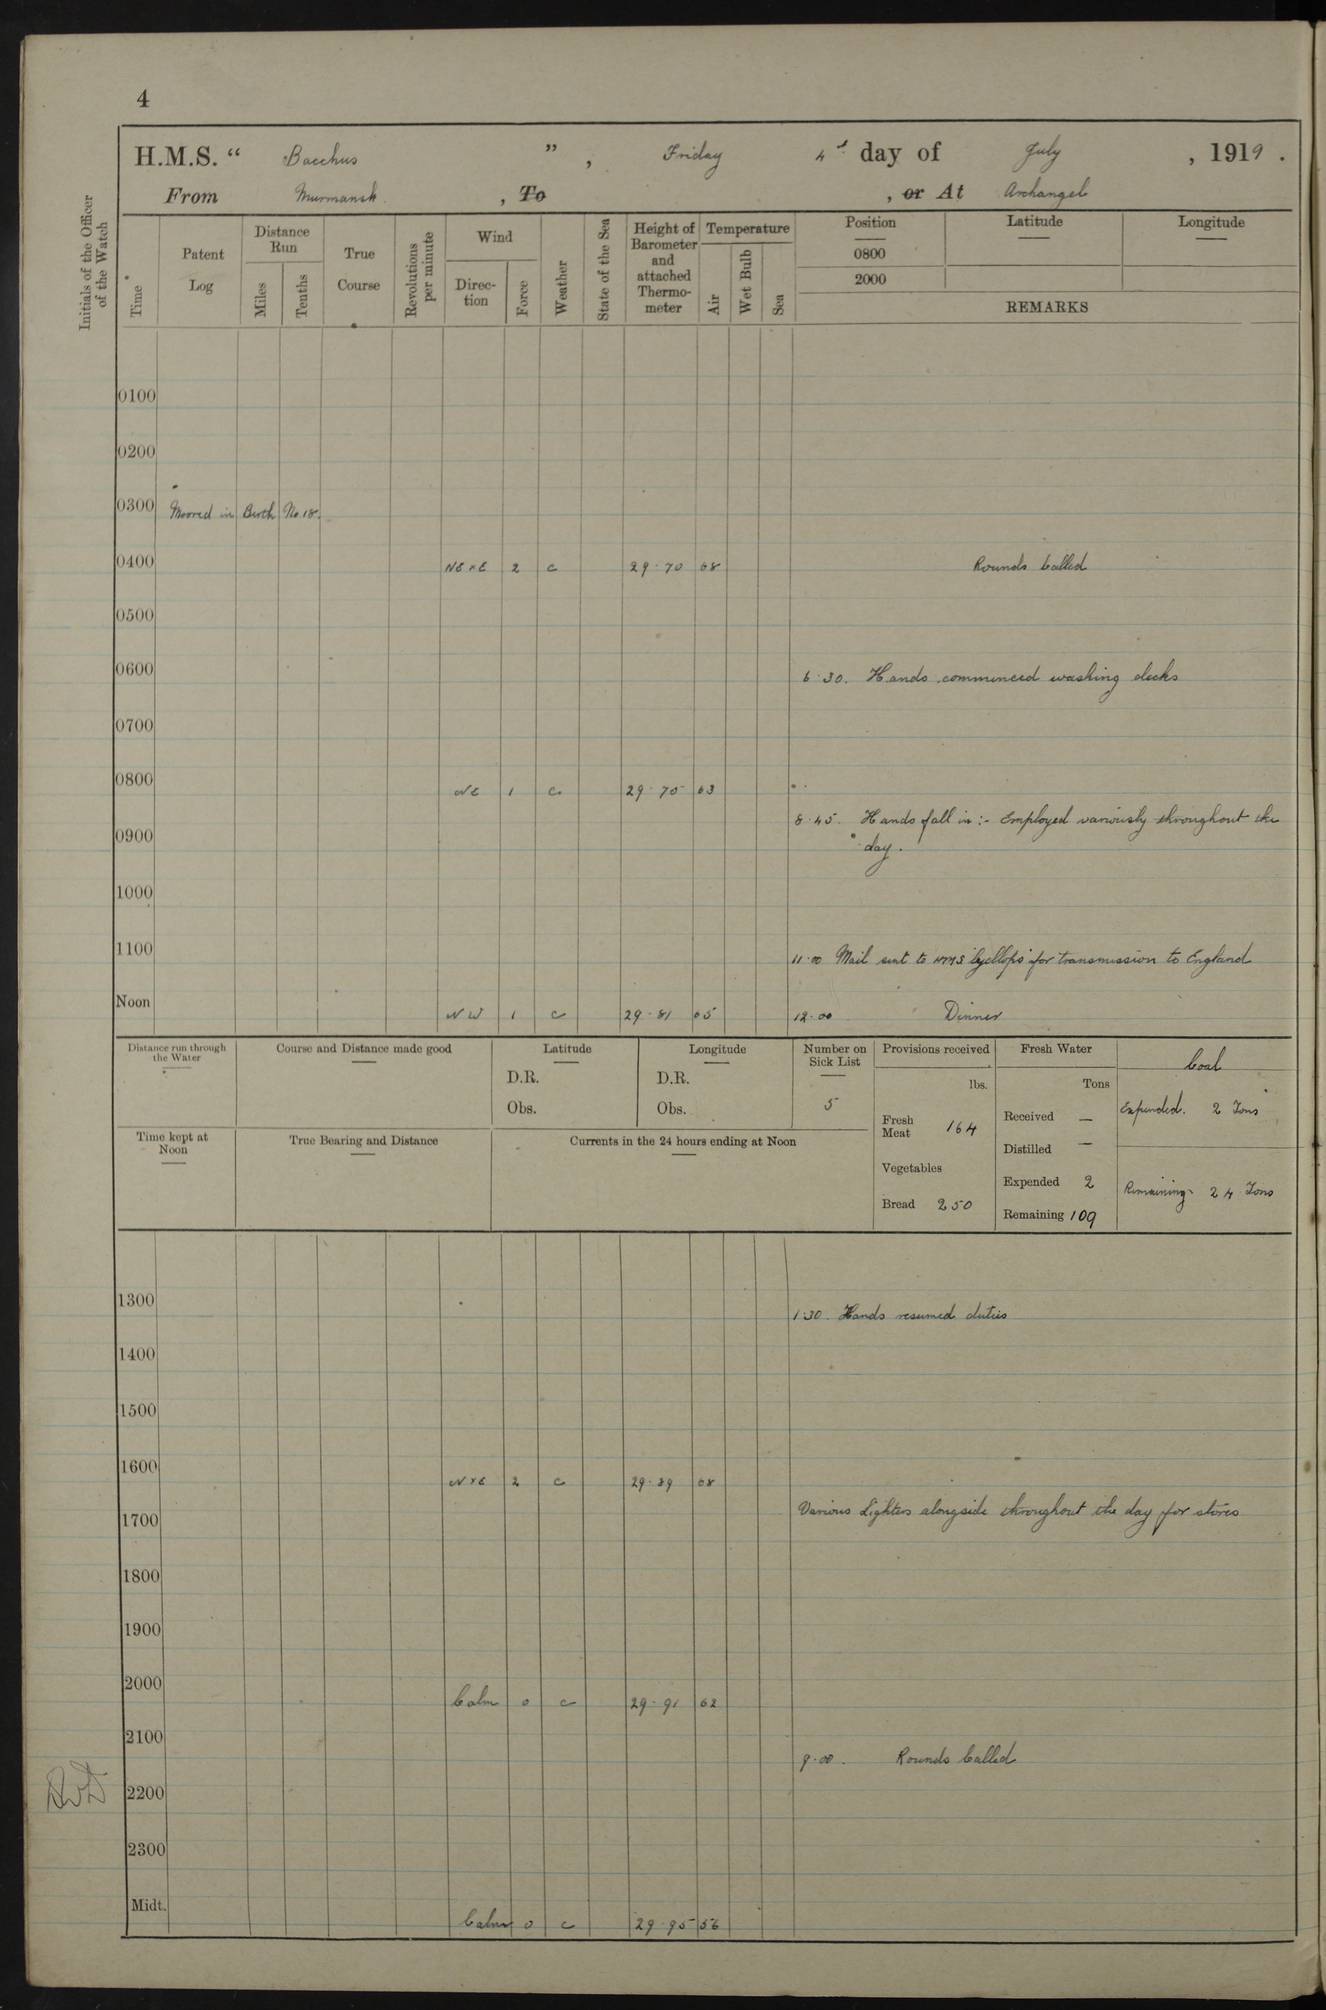 4
H.M.S. “ Bacchus ” , Friday 4 day of July , 1919 .
From Murmansk , To , or At Archangel
Initials of the Officer of the Watch
Time
Patent Log
Distance Run
Miles
Tenths
True Course
Revolutions per minute
Wind
Direc-tion
Force
Weather
State of the Sea
Height of Barometer and attached Thermo-meter
Temperature
Air
Wet Bulb
Sea
Position Latitude Longitude
0800
2000
REMARKS
0100
0200
0300 Moored in Berth No. 18.
0400 NE x E 2 c 29.70 68 Rounds Called
0500
0600
6.30. Hands commenced washing decks
0700
0800 NE 1 c 29.75 63
8.45. Hands fall in :- Employed variously throughout the
0900
day.
1000
1100 11.00 Mail sent to HMS Cyclops for transmission to England
Noon NW 1 c 29.81 65 12.00 Dinner
Distance run through the Water
Course and Distance made good
Latitude
D.R.
Obs.
Longitude
D.R.
Obs.
Number on Sick List
5
Provisions received
lbs.
Fresh Meat 164
Vegetables
Bread 250
Fresh Water
Tons
Received —
Distilled —
Expended 2
Remaining 109
Coal
Expended. 2 Tons
Remaining 24 Tons
Time kept at Noon
True Bearing and Distance
Currents in the 24 hours ending at Noon
1300 1.30. Hands resumed duties
1400
1500
1600 N x E 2 c 29.89 68
Various Lighters alongside throughout the day for stores
1700
1800
1900
2000 Calm 0 c 29.91 62
2100
9.00. Rounds Called
2200
2300
Midt. Calm 0 c 29.95 56